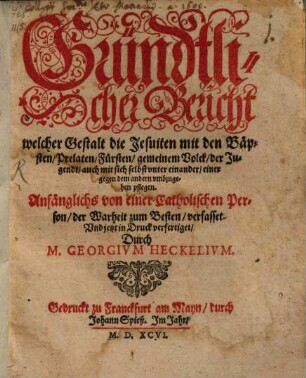 Gründtli-
cher Bericht
welcher Gestalt die Jesuiten mit den Bäp-
sten/ Prelaten/ Fürsten/ gemeinem Volck/ der Ju-
gendt/ auch mit sich selbst vnter einander/ einer
gegen dem andern vmbzuge-
hen pflegen.
Anfänglichs von einer Catholischen Per-
son/ der Warheit zum Besten/ verfasset.
Vnd jetzt in Druck verfertiget/
Durch
M. GEORGIVM HECKELIVM.
Gedruckt zu Franckfurt am Mayn/ durch
Johann Spieß. Im Jahr/
M. D. XCVI.